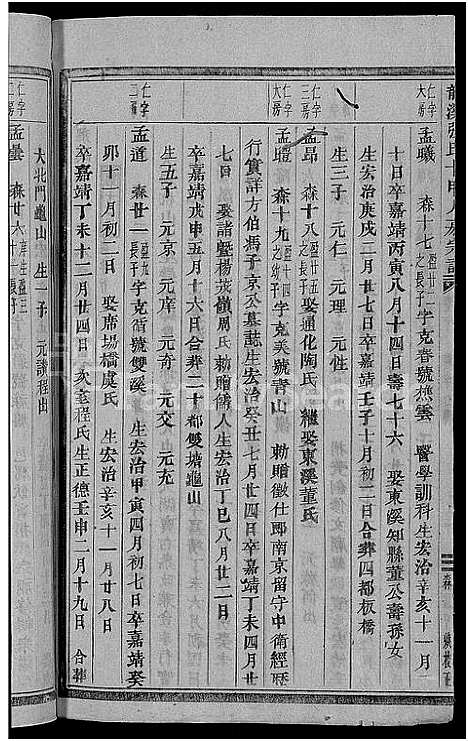 仁字
大房
孟曦 森十七 字克春號樵雲 醫學訓科生宏治辛亥十一月
十日卒嘉靖丙寅八月十四日壽七十六 娶東溪知縣董公壽孫女
生宏治庚戌二月廿七日卒嘉靖壬子十月初二日合葬四都板橋
生三子 元仁 元理 元性
仁字
三房
孟昂 森十八 之長子 娶通化陶氏 繼娶東溪董氏
仁字
大房
孟暟 森十九 之四子 字克美號青山 勅贈徵仕郎南京留守中衛經歷
行實詳方伯馮子京公墓誌生宏治癸丑七月廿四日卒嘉靖丁未四月廿
七日 娶諸暨楊茂嶺周氏勅贈儒人生宏治丁巳八月廿二日
卒嘉靖戊申五月十六日合葬二十都雙塘龜山
生五子 元京 元度 元奇 元交 元充
仁字
二房
孟道 森廿一 字克循號雙溪 生宏治甲寅四月初七日卒嘉靖癸
卯十一月初二日 娶席場橋虞氏 生宏治辛亥十一月廿八日
卒嘉靖丁未十二月廿四日 次室程氏生正德壬申二月十九日 合葬
大北門龜山 生一子 元讚程出
仁字
二房
孟曇 森廿六